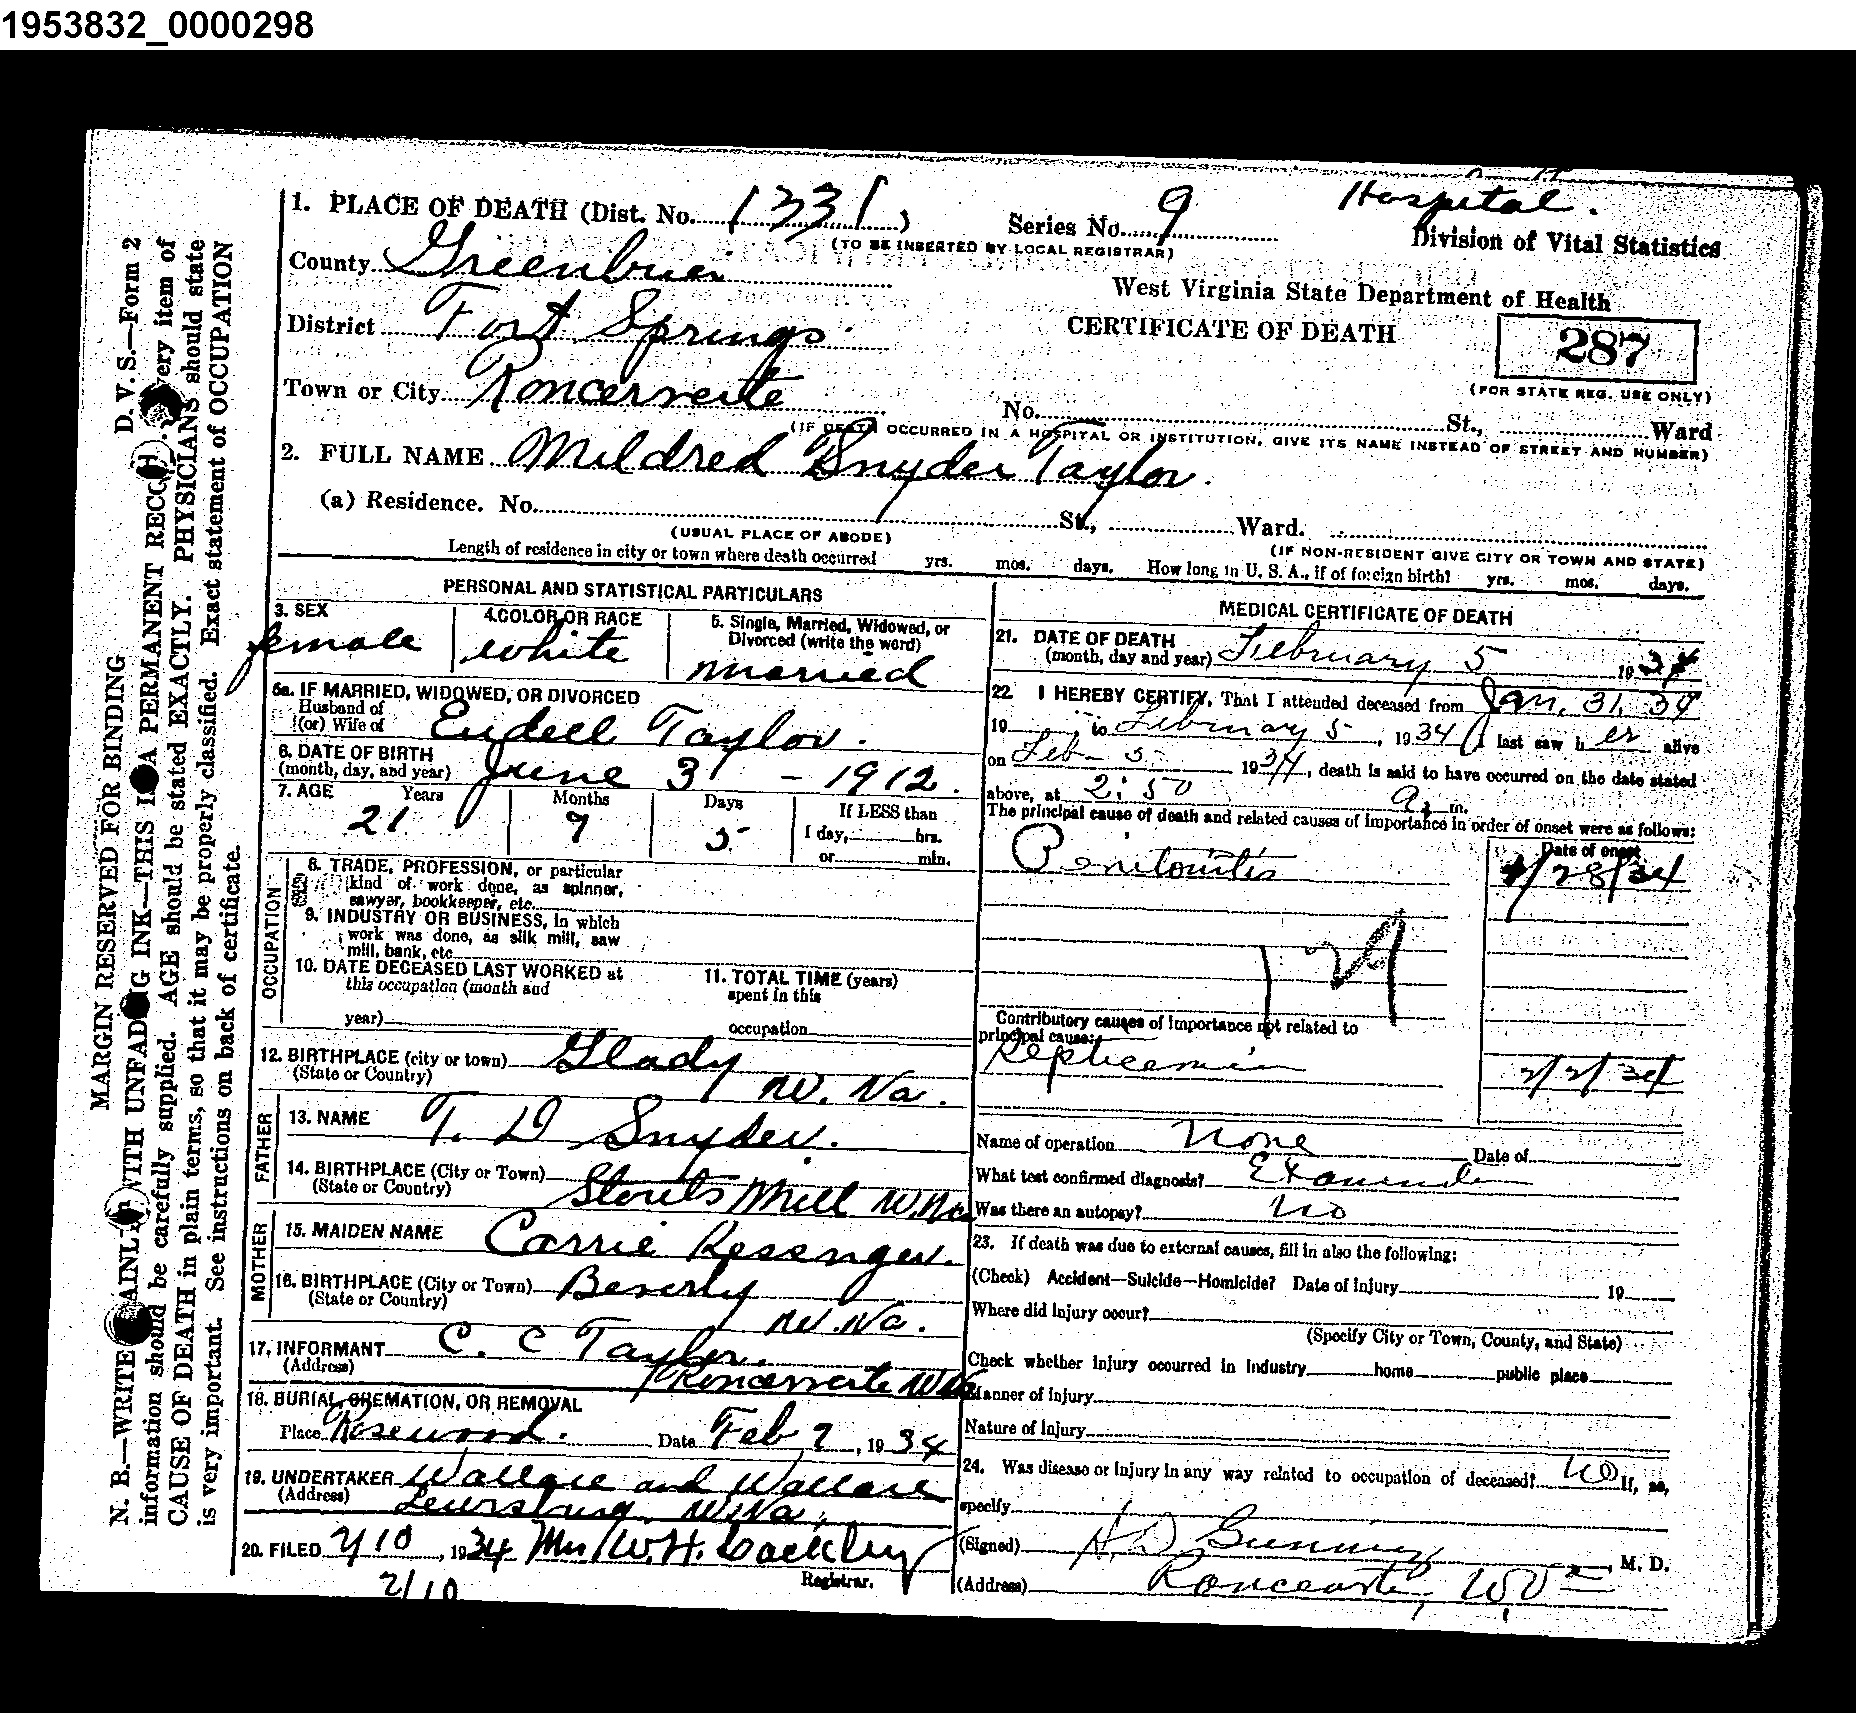 1953832_0000298
Hospital.
1. PLACE OF DEATH (Dist. No. 1331)
Series No. 9
(TO BE INSERTED BY LOCAL REGISTRAR)
Division of Vital Statistics
County Greenbrier
West Virginia State Department of Health
District Fort Springs.
CERTIFICATE OF DEATH
287
(FOR STATE REG. USE ONLY)
Town or City Ronceverte
No. St., Ward
(IF DEATH OCCURRED IN A HOSPITAL OR INSTITUTION, GIVE ITS NAME INSTEAD OF STREET AND NUMBER)
2. FULL NAME Mildred Snyder Taylor.
(a) Residence. No. St., Ward.
(USUAL PLACE OF ABODE)
(IF NON-RESIDENT GIVE CITY OR TOWN AND STATE)
Length of residence in city or town where death occurred yrs. mos. days. How long in U. S. A., if of foreign birth? yrs. mos. days.
PERSONAL AND STATISTICAL PARTICULARS
3. SEX
female
4. COLOR OR RACE
white
5. Single, Married, Widowed, or
Divorced (write the word)
married
5a. IF MARRIED, WIDOWED, OR DIVORCED
Husband of
(or) Wife of Eudell Taylor.
6. DATE OF BIRTH
(month, day, and year) June 3 - 1912.
7. AGE Years Months Days If LESS than
21 7 5 1 day, hrs.
or min.
OCCUPATION
8. TRADE, PROFESSION, or particular
kind of work done, as spinner,
sawyer, bookkeeper, etc.
9. INDUSTRY OR BUSINESS, in which
work was done, as silk mill, saw
mill, bank, etc
10. DATE DECEASED LAST WORKED at
this occupation (month and
year)
11. TOTAL TIME (years)
spent in this
occupation
12. BIRTHPLACE (city or town) Glady
(State or Country) W. Va.
FATHER
13. NAME T. D Snyder.
14. BIRTHPLACE (City or Town)
(State or Country) Mill W. Va.
MOTHER
15. MAIDEN NAME Carrie
16. BIRTHPLACE (City or Town) Beverly
(State or Country) W. Va.
17. INFORMANT C. C Taylor.
(Address) Ronceverte W Va
18. BURIAL, CREMATION, OR REMOVAL
Place Rosewood. Date Feb 7, 1934
19. UNDERTAKER Wallace and Wallace
(Address) Lewisburg W Va.
20. FILED 2/10, 1934 Mrs W. H. Cackley
Registrar.
2/10
MEDICAL CERTIFICATE OF DEATH
21. DATE OF DEATH
(month, day and year) February 5 1934
22. I HEREBY CERTIFY, That I attended deceased from Jan. 31, 34
19 to February 5, 1934 I last saw her alive
on Feb - 5 1934, death is said to have occurred on the date stated
above, at 2:50 a. m.
The principal cause of death and related causes of importance in order of onset were as follows:
Date of onset
Peritonitis 1/28/34
Contributory causes of importance not related to
principal cause:
Septicemia 2/2/34
Name of operation None Date of
What test confirmed diagnosis?
Was there an autopsy? No
23. If death was due to external causes, fill in also the following:
(Check) Accident—Suicide—Homicide? Date of injury 19
Where did injury occur?
(Specify City or Town, County, and State)
Check whether injury occurred in industry home public place
Manner of injury
Nature of injury
24. Was disease or injury in any way related to occupation of deceased? No If, so,
specify
(Signed) H. D Gunning, M. D.
(Address) Ronceverte, W. Va
MARGIN RESERVED FOR BINDING
D. V. S.—Form 2
N. B.—WRITE PLAINLY WITH UNFADING INK—THIS IS A PERMANENT RECORD. Every item of
information should be carefully supplied. AGE should be stated EXACTLY. PHYSICIANS should state
CAUSE OF DEATH in plain terms, so that it may be properly classified. Exact statement of OCCUPATION
is very important. See instructions on back of certificate.